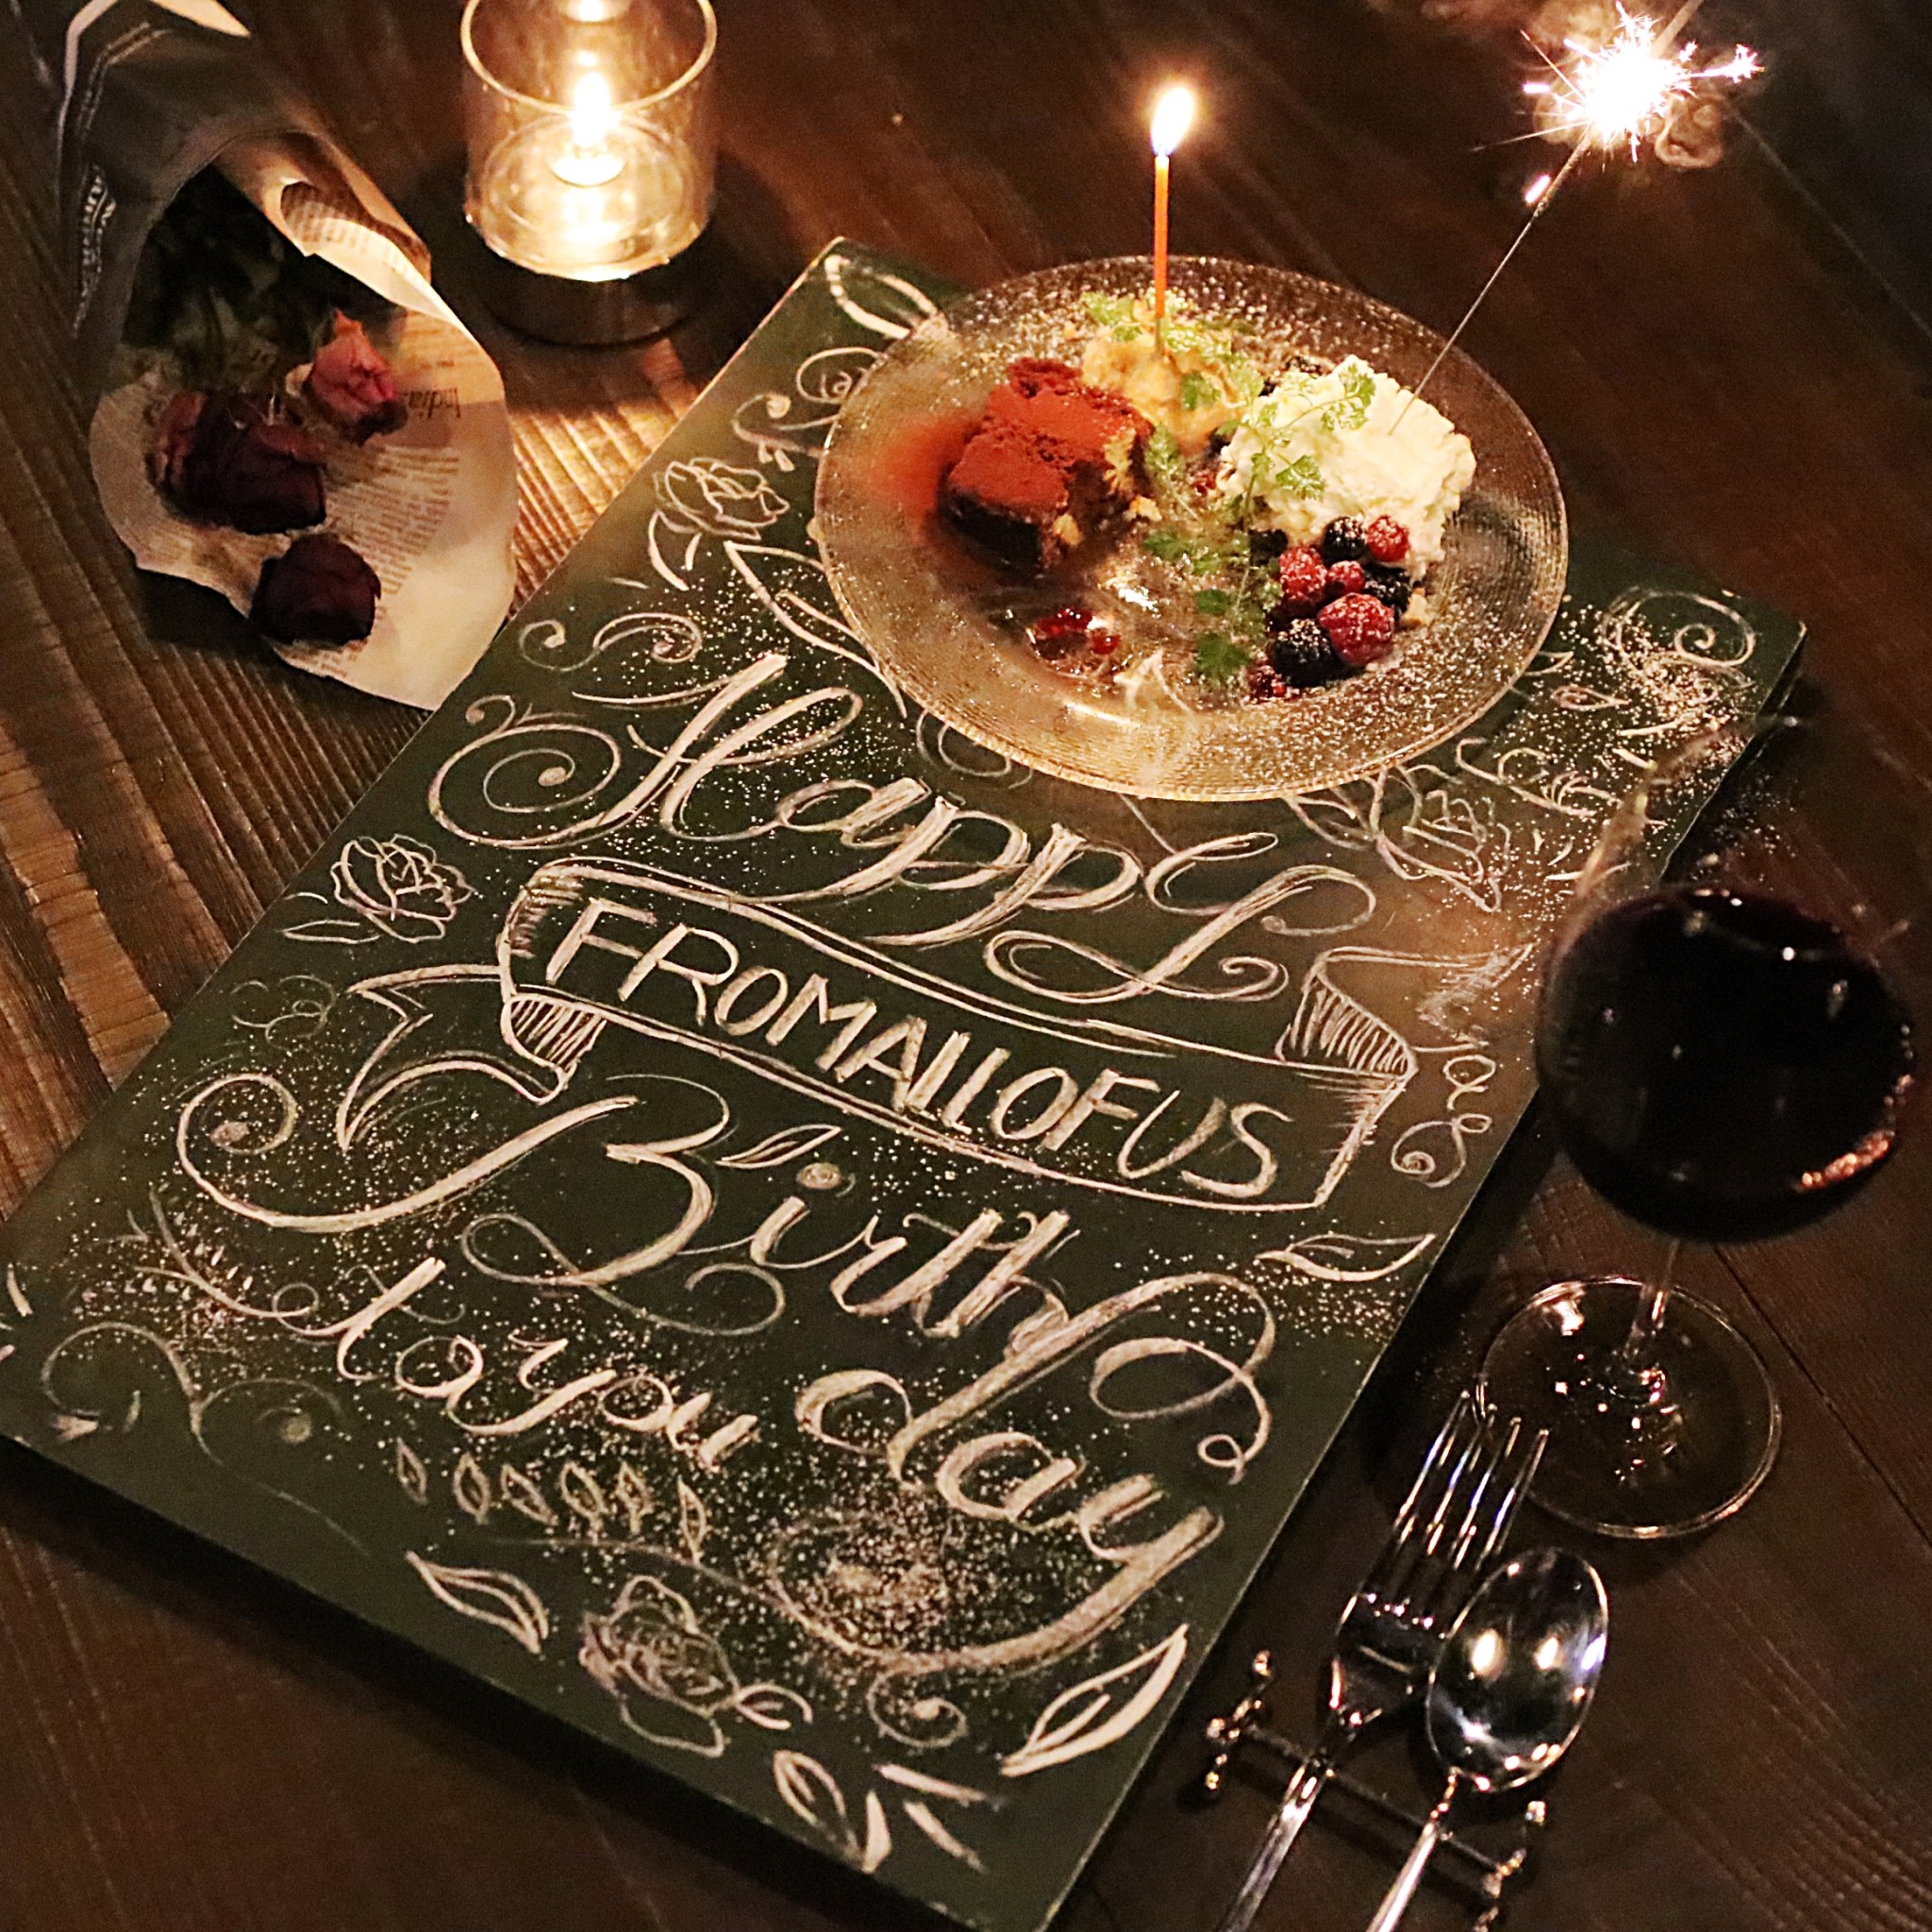 Happy
FROMALLOFUS
Birthday
to you